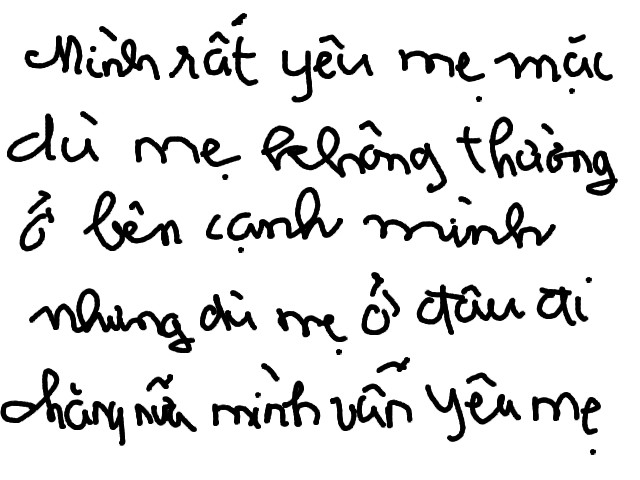 Mình rất yêu mẹ mặc
dù mẹ không thường
ở bên cạnh mình
nhưng dù mẹ ở đâu đi
chăng nữa mình vẫn yêu mẹ